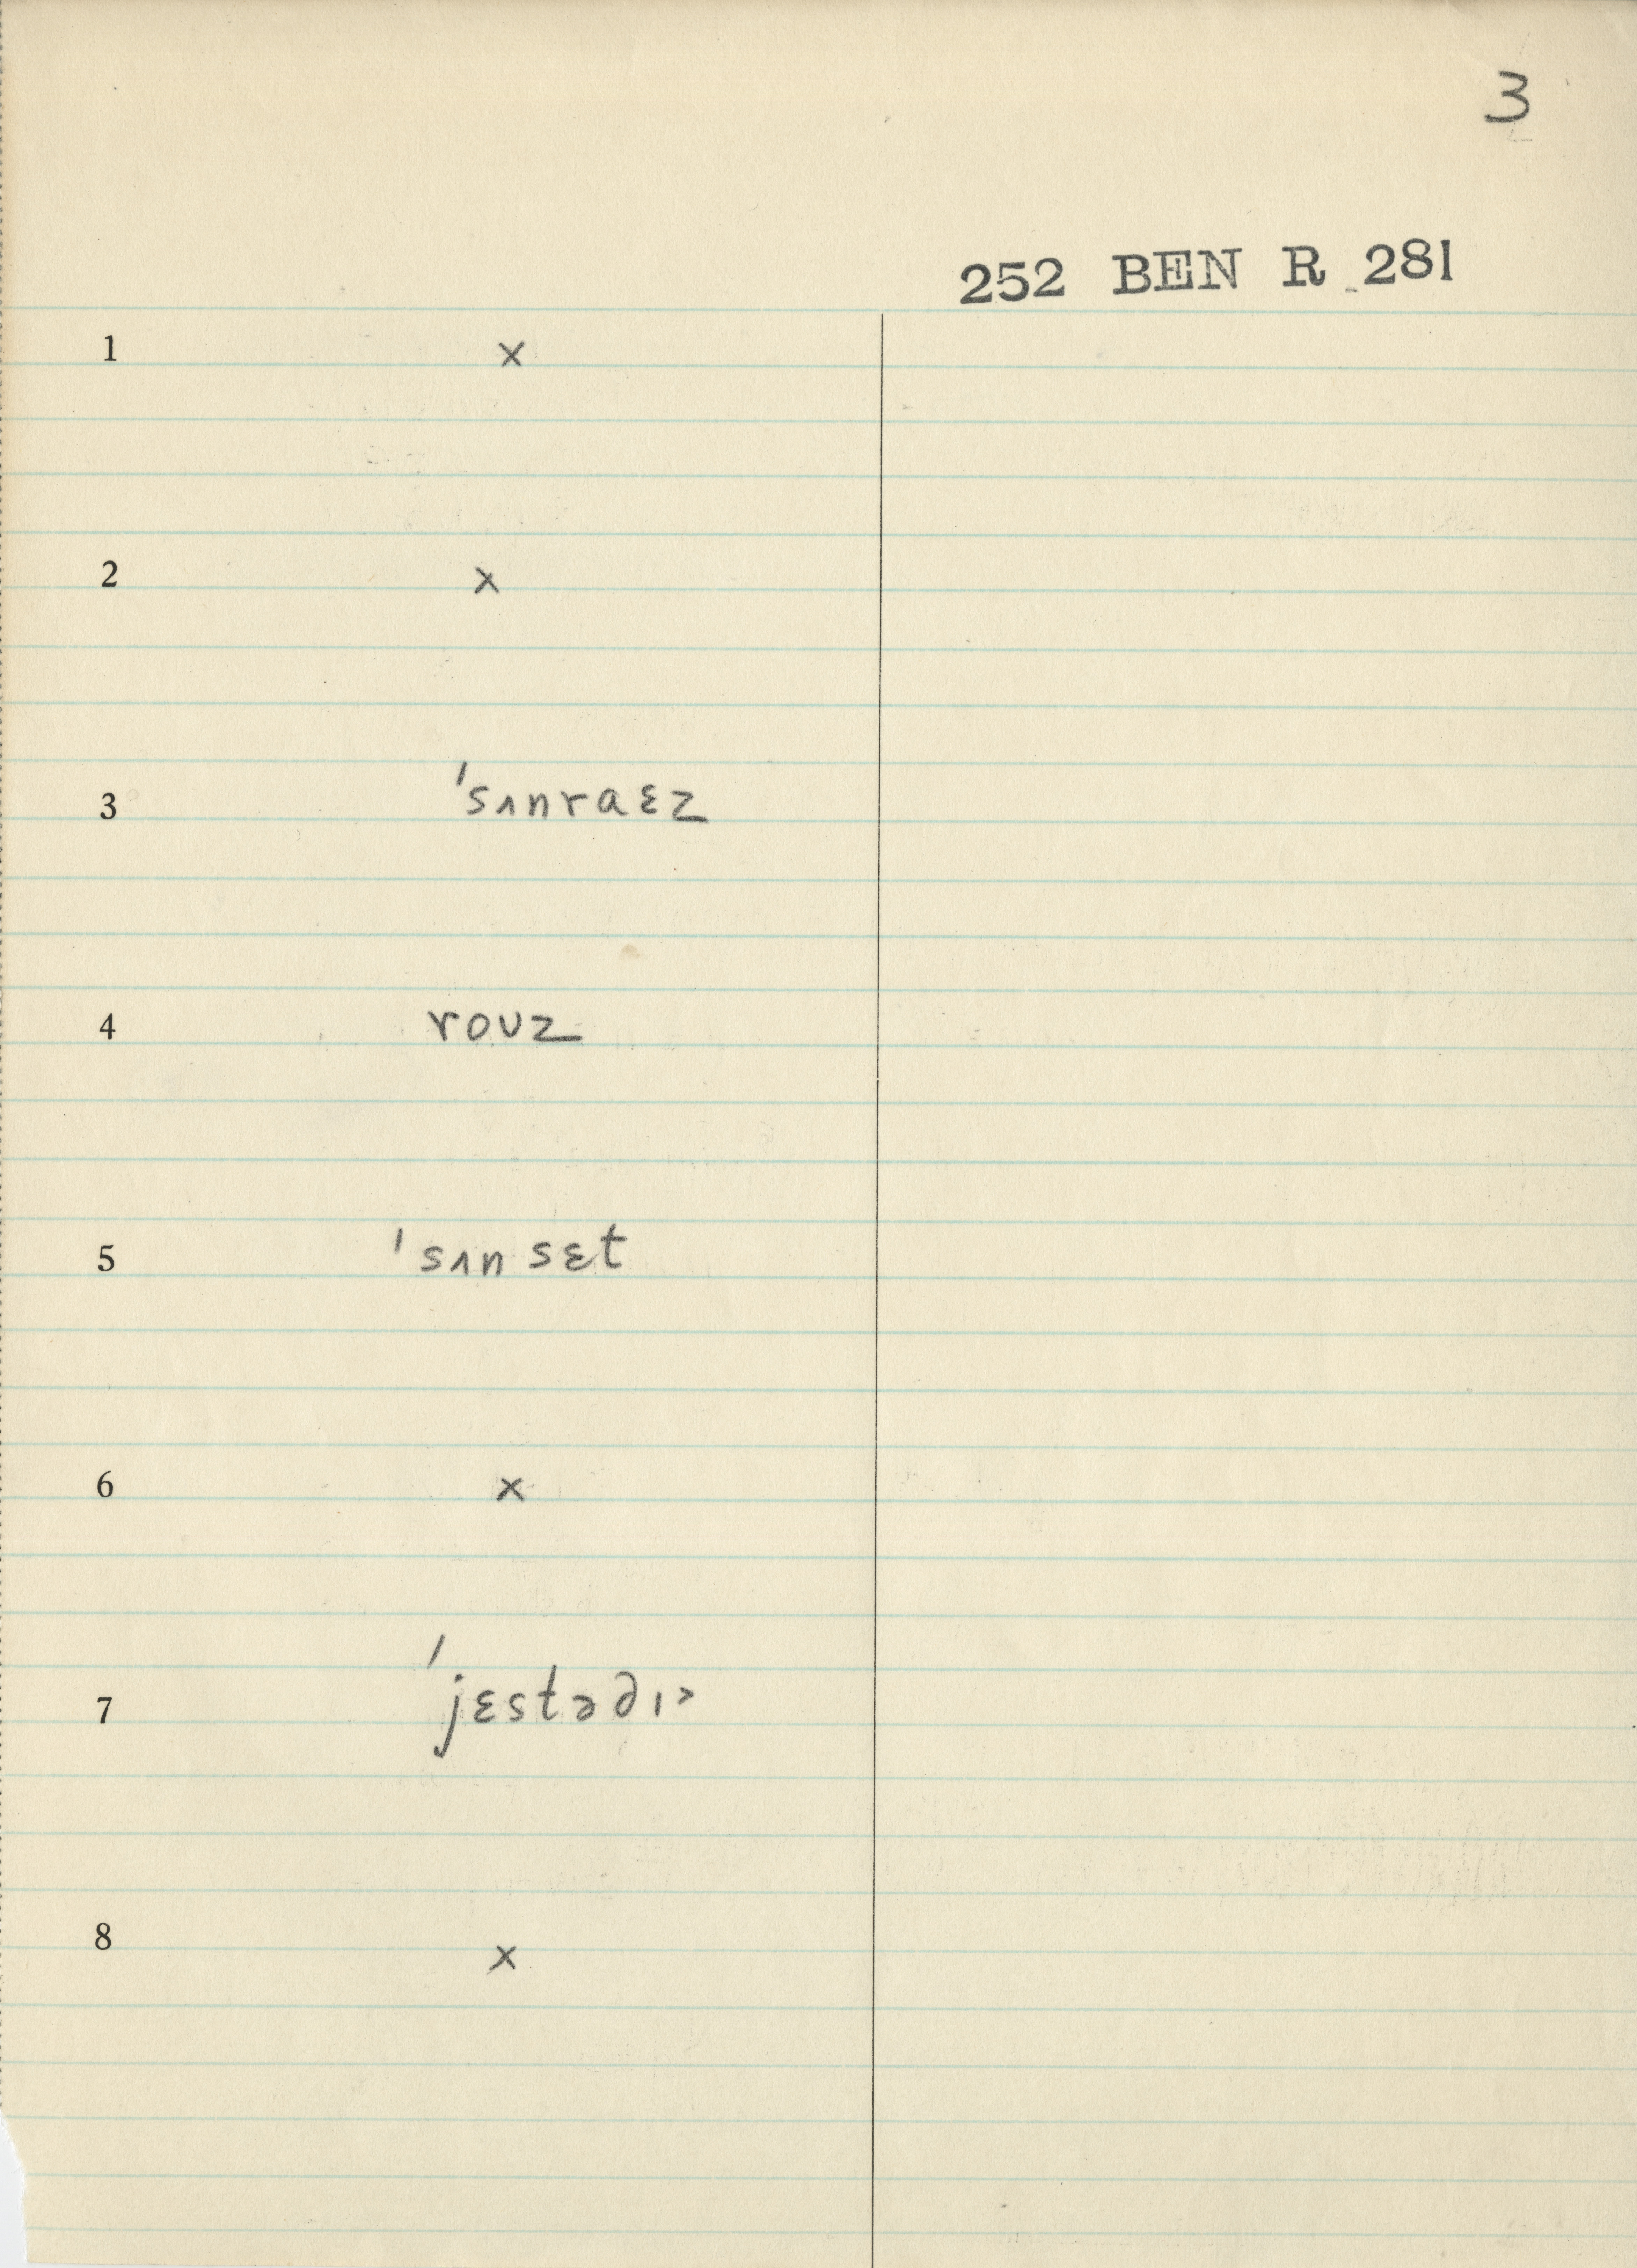 3
252 BEN R 281
1 ×
2 ×
3 ˈsʌnraɛz
4 roʊz
5 ˈsʌnsɛt
6 ×
7 ˈjɛstədɪ˃
8 ×